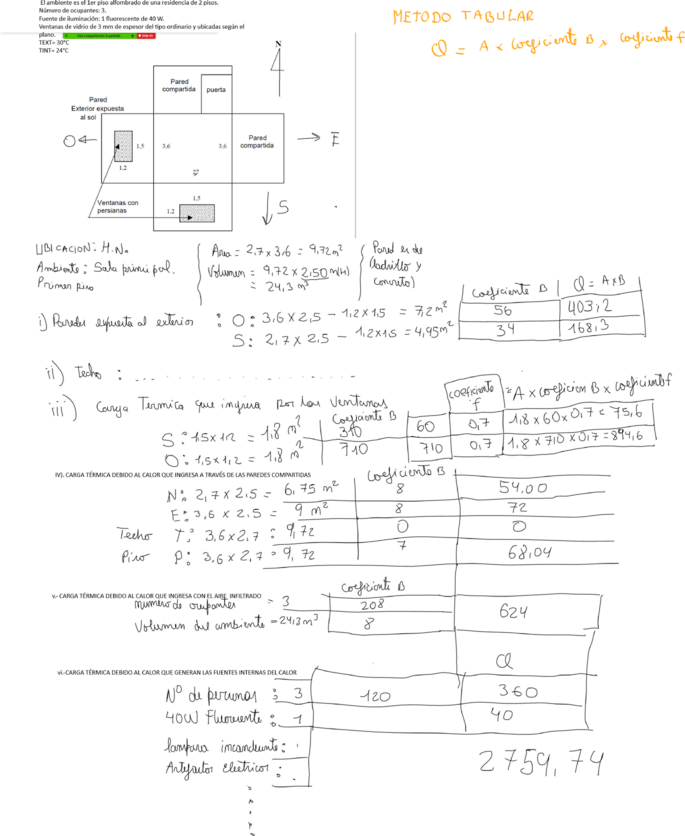 El ambiente es el 1er piso alfombrado de una residencia de 2 pisos.
Número de ocupantes: 3.
Fuente de iluminación: 1 fluorescente de 40 W.
Ventanas de vidrio de 3 mm de espesor del tipo ordinario y ubicadas según el
plano.
TEXT= 30°C
TINT= 24°C
METODO TABULAR
Q = A x coeficiente B x coeficiente f
N
Pared
compartida
puerta
Pared
Exterior expuesta
al sol
O
1,5
3,6
3,6
Pared
compartida
E
1,2
Ventanas con
persianas
1,5
1,2
S
UBICACION: H.N.
Ambiente; Sala principal.
Primer piso
Area = 2,7 x 3,6 = 9,72 m²
Volumen = 9,72 x 2,50 m(H)
= 24,3 m³
Pared es de
(ladrillo y
concreto)
coeficiente B
Q = A x B
i) Paredes expuesta al exterior : O: 3,6 x 2,5 - 1,2 x 1,5 = 7,2 m²
56
403,2
S: 2,7 x 2.5 - 1,2 x 1,5 = 4,95 m²
34
168,3
ii) Techo :
iii) Carga Termica que ingresa por las ventanas
Coeficiente B
coeficiente f
= A x coeficien B x coeficient f
S: 1,5 x 1,2 = 1,8 m²
310
60
0,7
1,8 x 60 x 0,7 = 75,6
O: 1,5 x 1,2 = 1,8 m²
710
710
0,7
1,8 x 710 x 0,7 = 894,6
IV). CARGA TÉRMICA DEBIDO AL CALOR QUE INGRESA A TRAVÉS DE LAS PAREDES COMPARTIDAS
Coeficiente B
N: 2,7 x 2.5 = 6,75 m²
8
54.00
E: 3,6 x 2.5 = 9 m²
8
72
Techo T: 3,6 x 2,7 = 9,72
0
0
Piso P: 3,6 x 2,7 = 9,72
7
68,04
v.- CARGA TÉRMICA DEBIDO AL CALOR QUE INGRESA CON EL AIRE INFILTRADO
coeficiente B
numero de ocupantes = 3
208
624
Volumen del ambiente = 24,3 m³
8
vi.-CARGA TÉRMICA DEBIDO AL CALOR QUE GENERAN LAS FUENTES INTERNAS DEL CALOR
Q
Nº de personas : 3
120
360
40W Fluorecente : 1
40
lampara incandecente :
Artefactos electricos :
2759,74